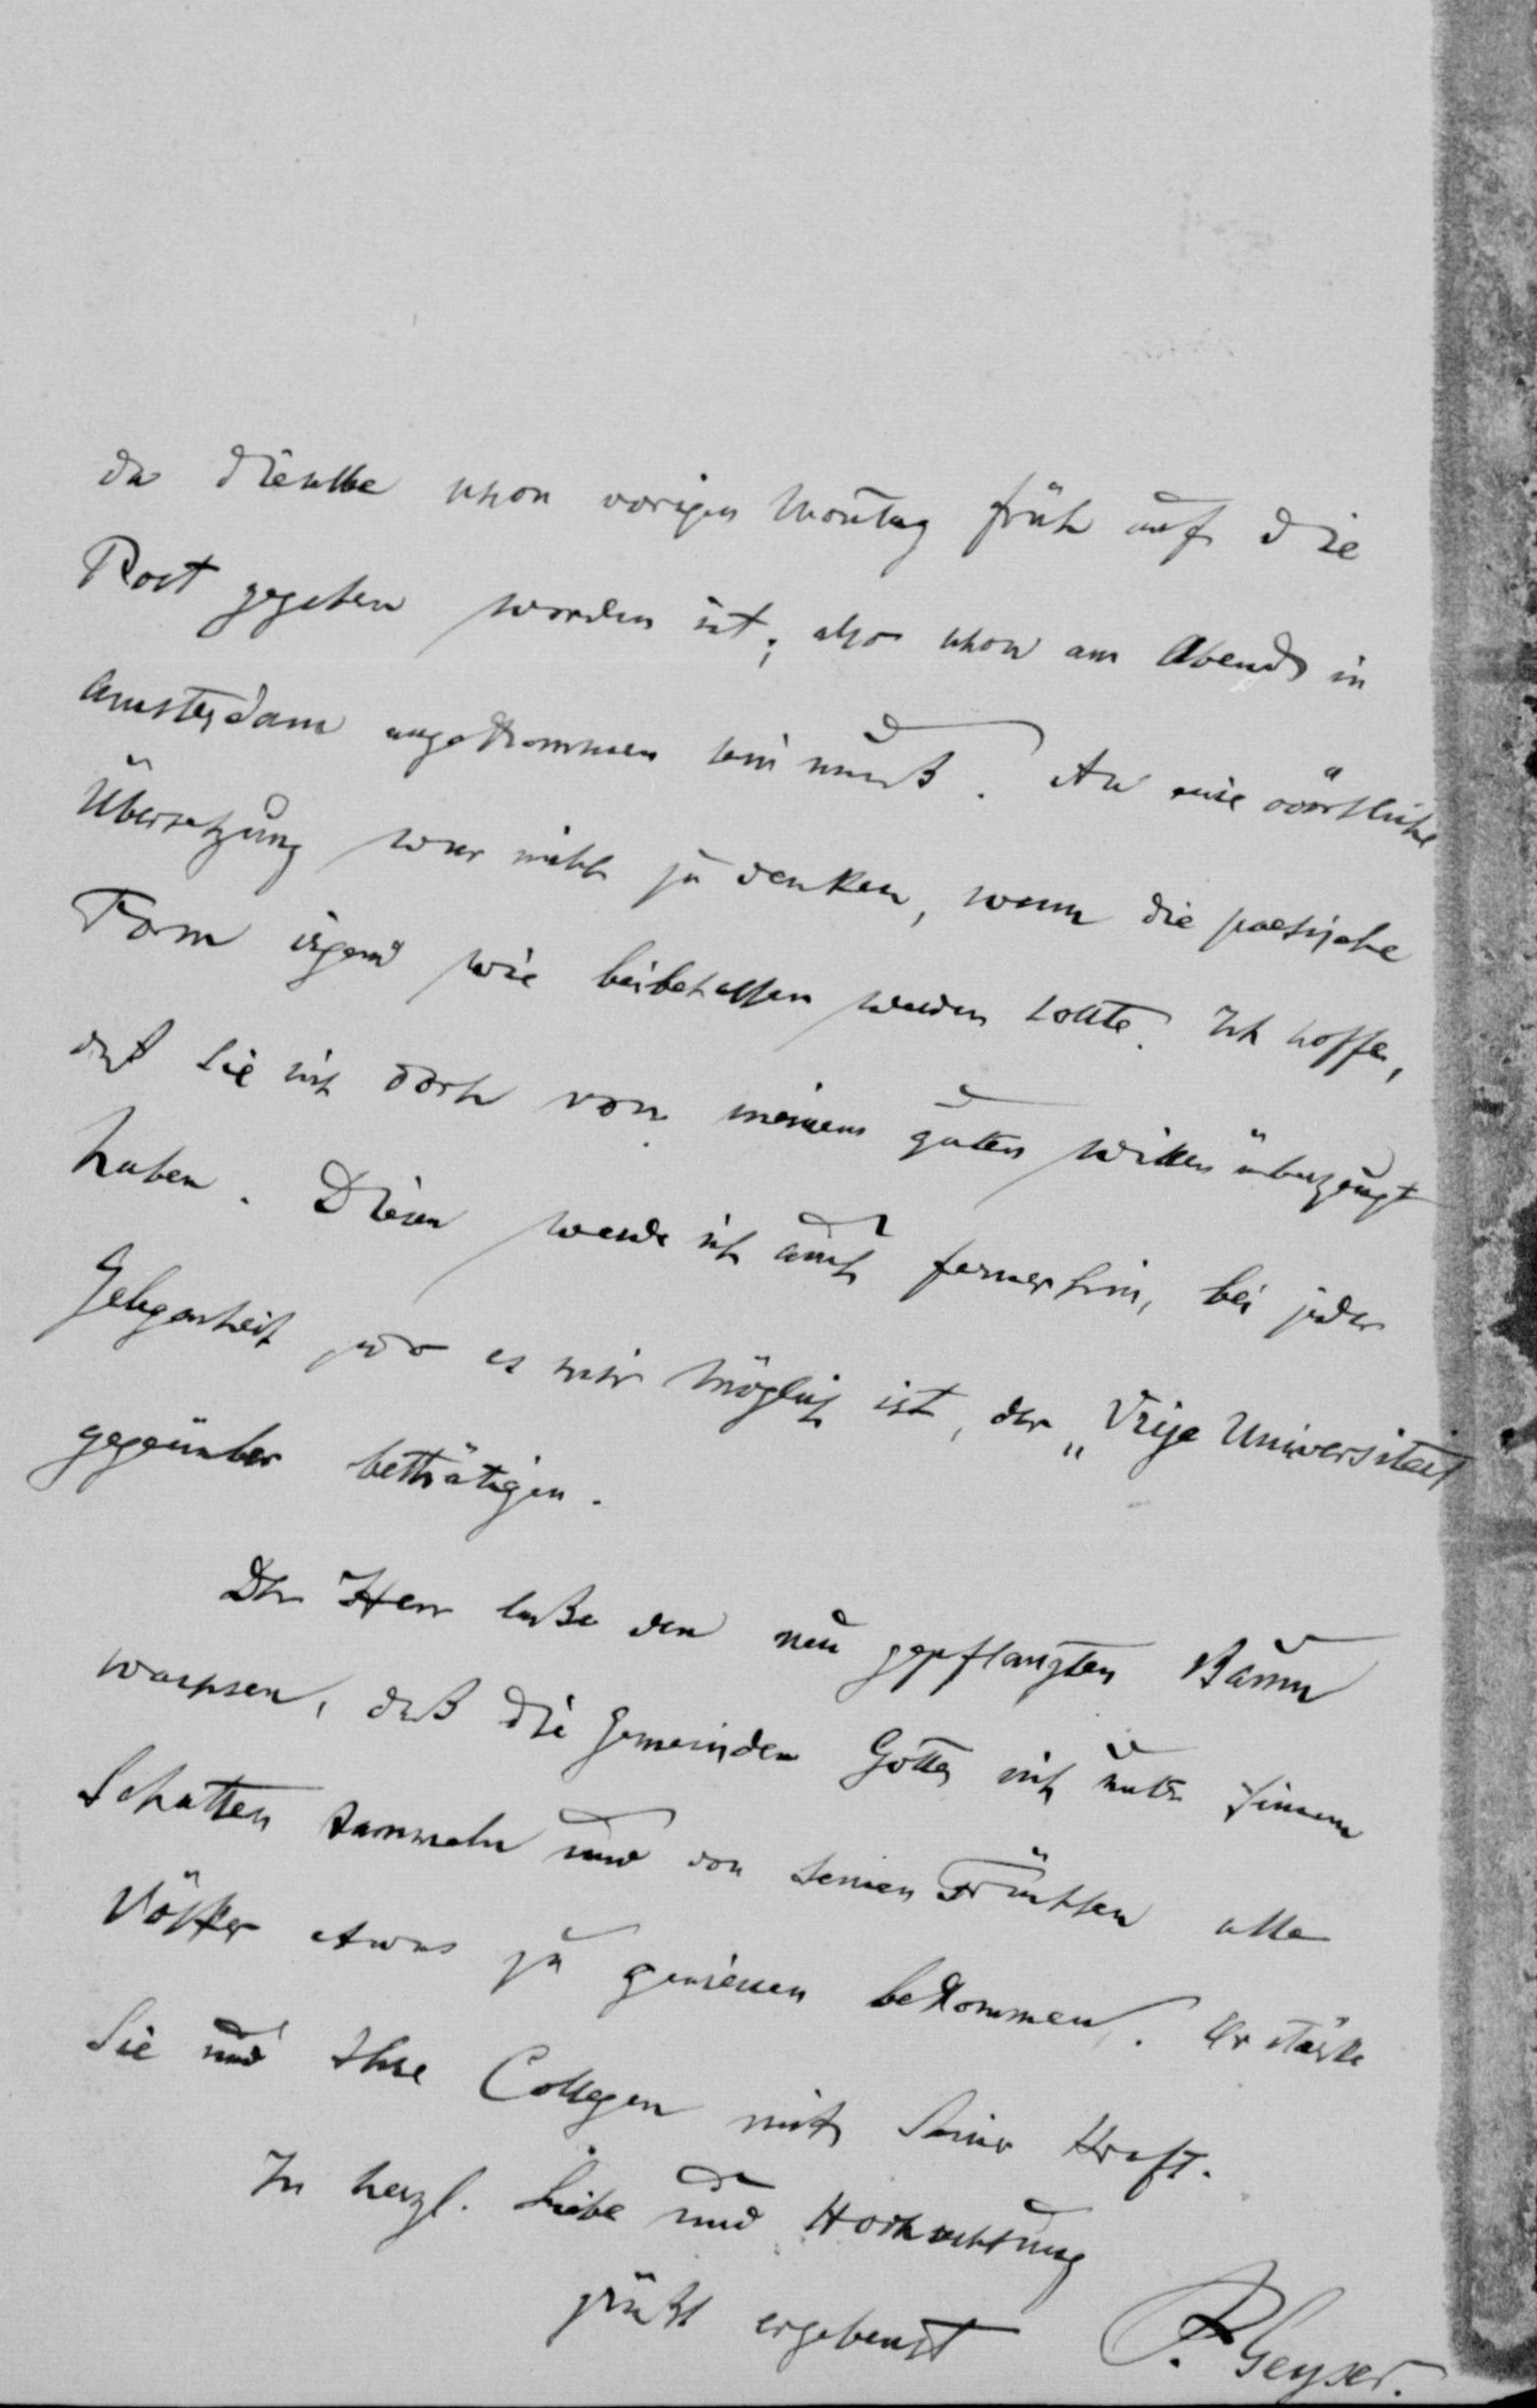 da dieselbe schon vorigen Montag früh auf die
Post gegeben worden ist; also schon am Abend in
Amsterdam angekommen sein muß. An eine wörtliche
Übersetzung war nicht zu denken, wenn die poetische
Form irgend wie beibehalten werden sollte. Ich hoffe,
daß Sie sich doch von meinem guten Willen überzeugt
haben. Diesen werde ich auch fernerhin, bei jeder
Gelegenheit wo es mir möglich ist, der „Vrije Universiteit
gegenüber bethätigen.
Der Herr laße den neu gepflanzten Baum
wachsen, daß die Gemeinden Gottes sich unter seinem
Schatten sammeln und von seinen Früchten alle
Völker etwas zu geniessen bekommen. Er stärke
Sie und Ihre Collegen mit Seiner Kraft.
In herzl. Liebe und Hochachtung
grüßt ergebenst P. Geyser.